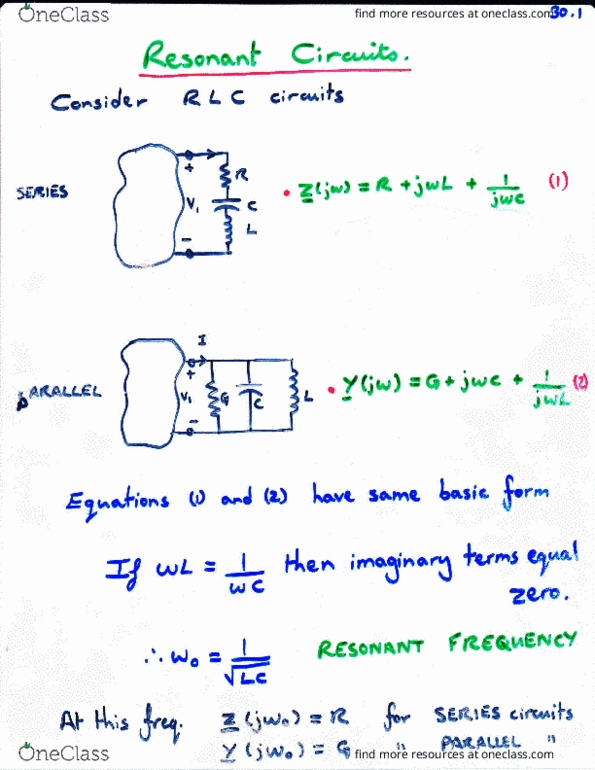 OneClass find more resources at oneclass.com 30.1
Resonant Circuits.
Consider RLC circuits
SERIES
+ V₁ − R C L
• Z(jω) = R + jωL + 1/jωC (1)
PARALLEL
I + V₁ − G C L
• Y(jω) = G + jωC + 1/jωL (2)
Equations (1) and (2) have same basic form
If ωL = 1/ωC then imaginary terms equal
zero.
∴ ω₀ = 1/√LC RESONANT FREQUENCY
At this freq. Z(jω₀) = R for SERIES circuits
Y(jω₀) = G " PARALLEL "
OneClass find more resources at oneclass.com